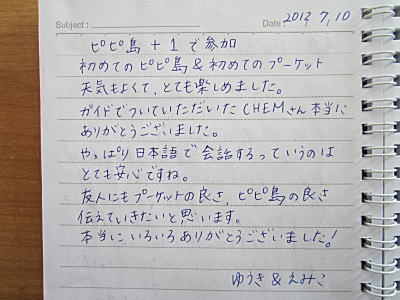 Subject : Date : 2012. 7. 10
ピピ島 + 1 で参加
初めてのピピ島 & 初めてのプーケット
天気もよくて、とても楽しめました。
ガイドでついていただいた CHEMさん本当に
ありがとうございました。
やっぱり日本語で会話するっていうのは
とても安心ですね。
友人にもプーケットの良さ、ピピ島の良さ
伝えていきたいと思います。
本当にいろいろありがとうございました!
ゆうき & えみこ